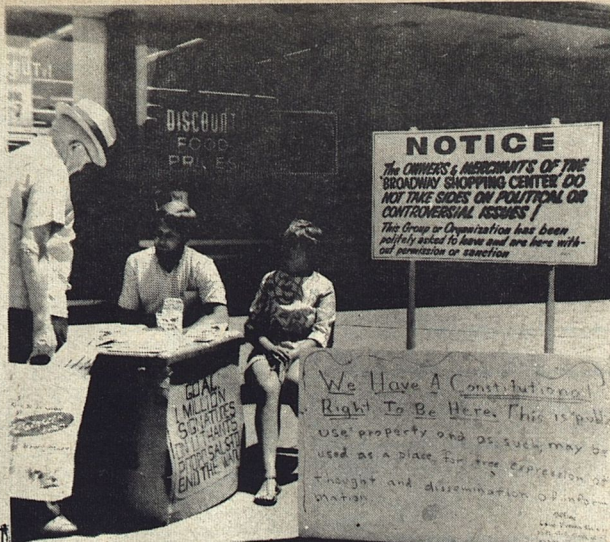 DISCOUNT
FOOD
PRICES
NOTICE
The OWNERS & MERCHANTS OF THE
BROADWAY SHOPPING CENTER DO
NOT TAKE SIDES ON POLITICAL OR
CONTROVERSIAL ISSUES!
This Group or Organization has been
politely asked to leave and are here with-
out permission or sanction
GOAL
1 MILLION
SIGNATURES
ON U THANTS
PROPOSALS TO
END THE WAR
We Have A Constitutional
Right To Be Here. This is public
use property and as such, may be
used as a place for free expression of
thought and dissemination of infor-
mation